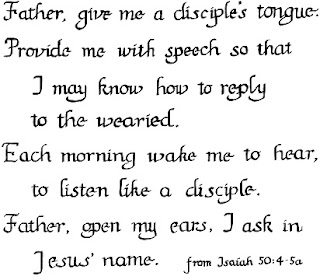 Father, give me a disciple's tongue.
Provide me with speech so that
I may know how to reply
to the wearied.
Each morning wake me to hear,
to listen like a disciple.
Father, open my ears, I ask in
Jesus' name. from Isaiah 50:4-5a